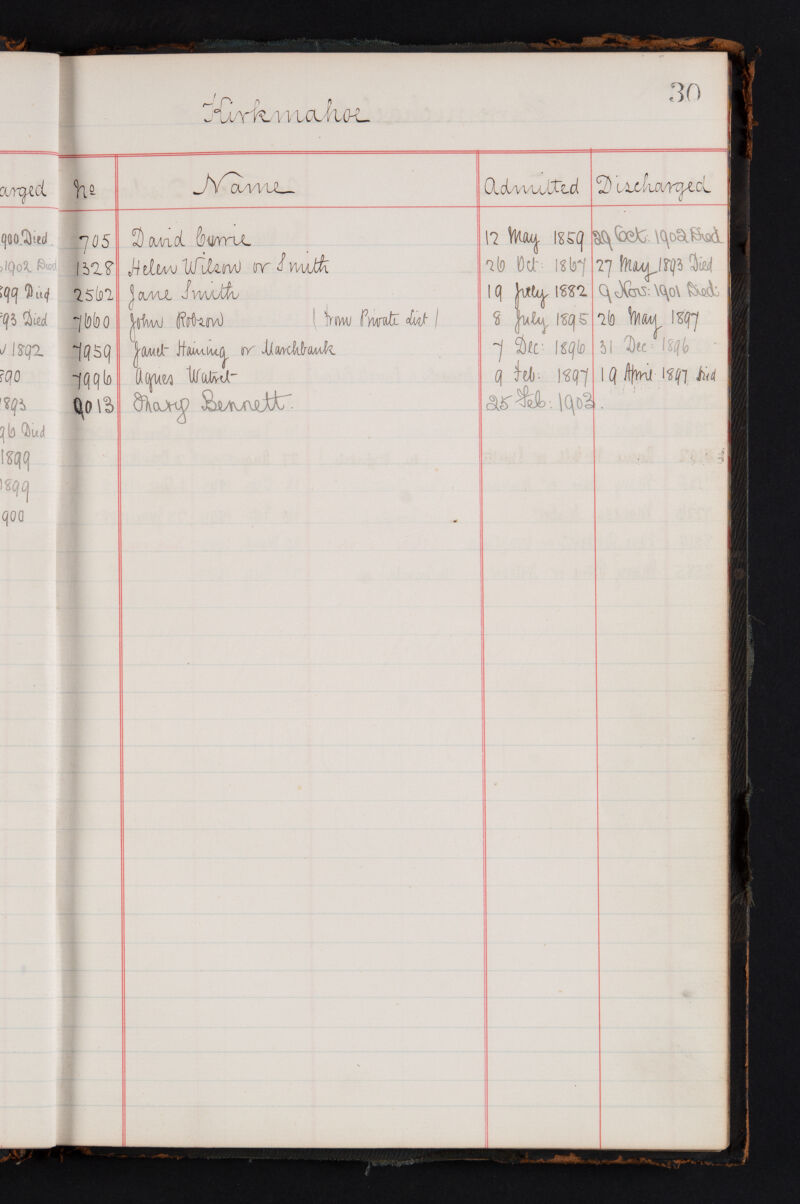 30
Kirkmahoe
arged
No Name Admitted Discharged
900 Died
705 David Currie 12 May 1859 29 Oct: 1902 Died
1902 Died
1328 Helen Wilson or Smith 26 Oct: 1867 27 May 1893 Died
899 Died
2562 Jane Smith 19 July 1882 9 Nov: 1901 Died:
93 Died
7660 John Robson (From Private list) 8 July 1895 26 May 1897
1892
7959 Janet Haining or Marchbank 7 Dec: 1896 31 Dec: 1896
890
7996 Agnes Watret 9 Feb: 1897 19 April 1897 Died
1893
9013 Mary Bennett. 25 Feb: 1903.
96 Died
1899
1899
900